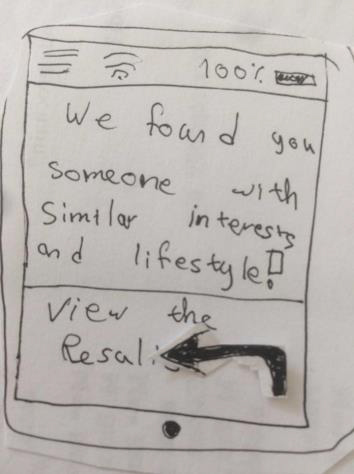 100%
We found you
someone with
Similar interests
and lifestyle!
View the